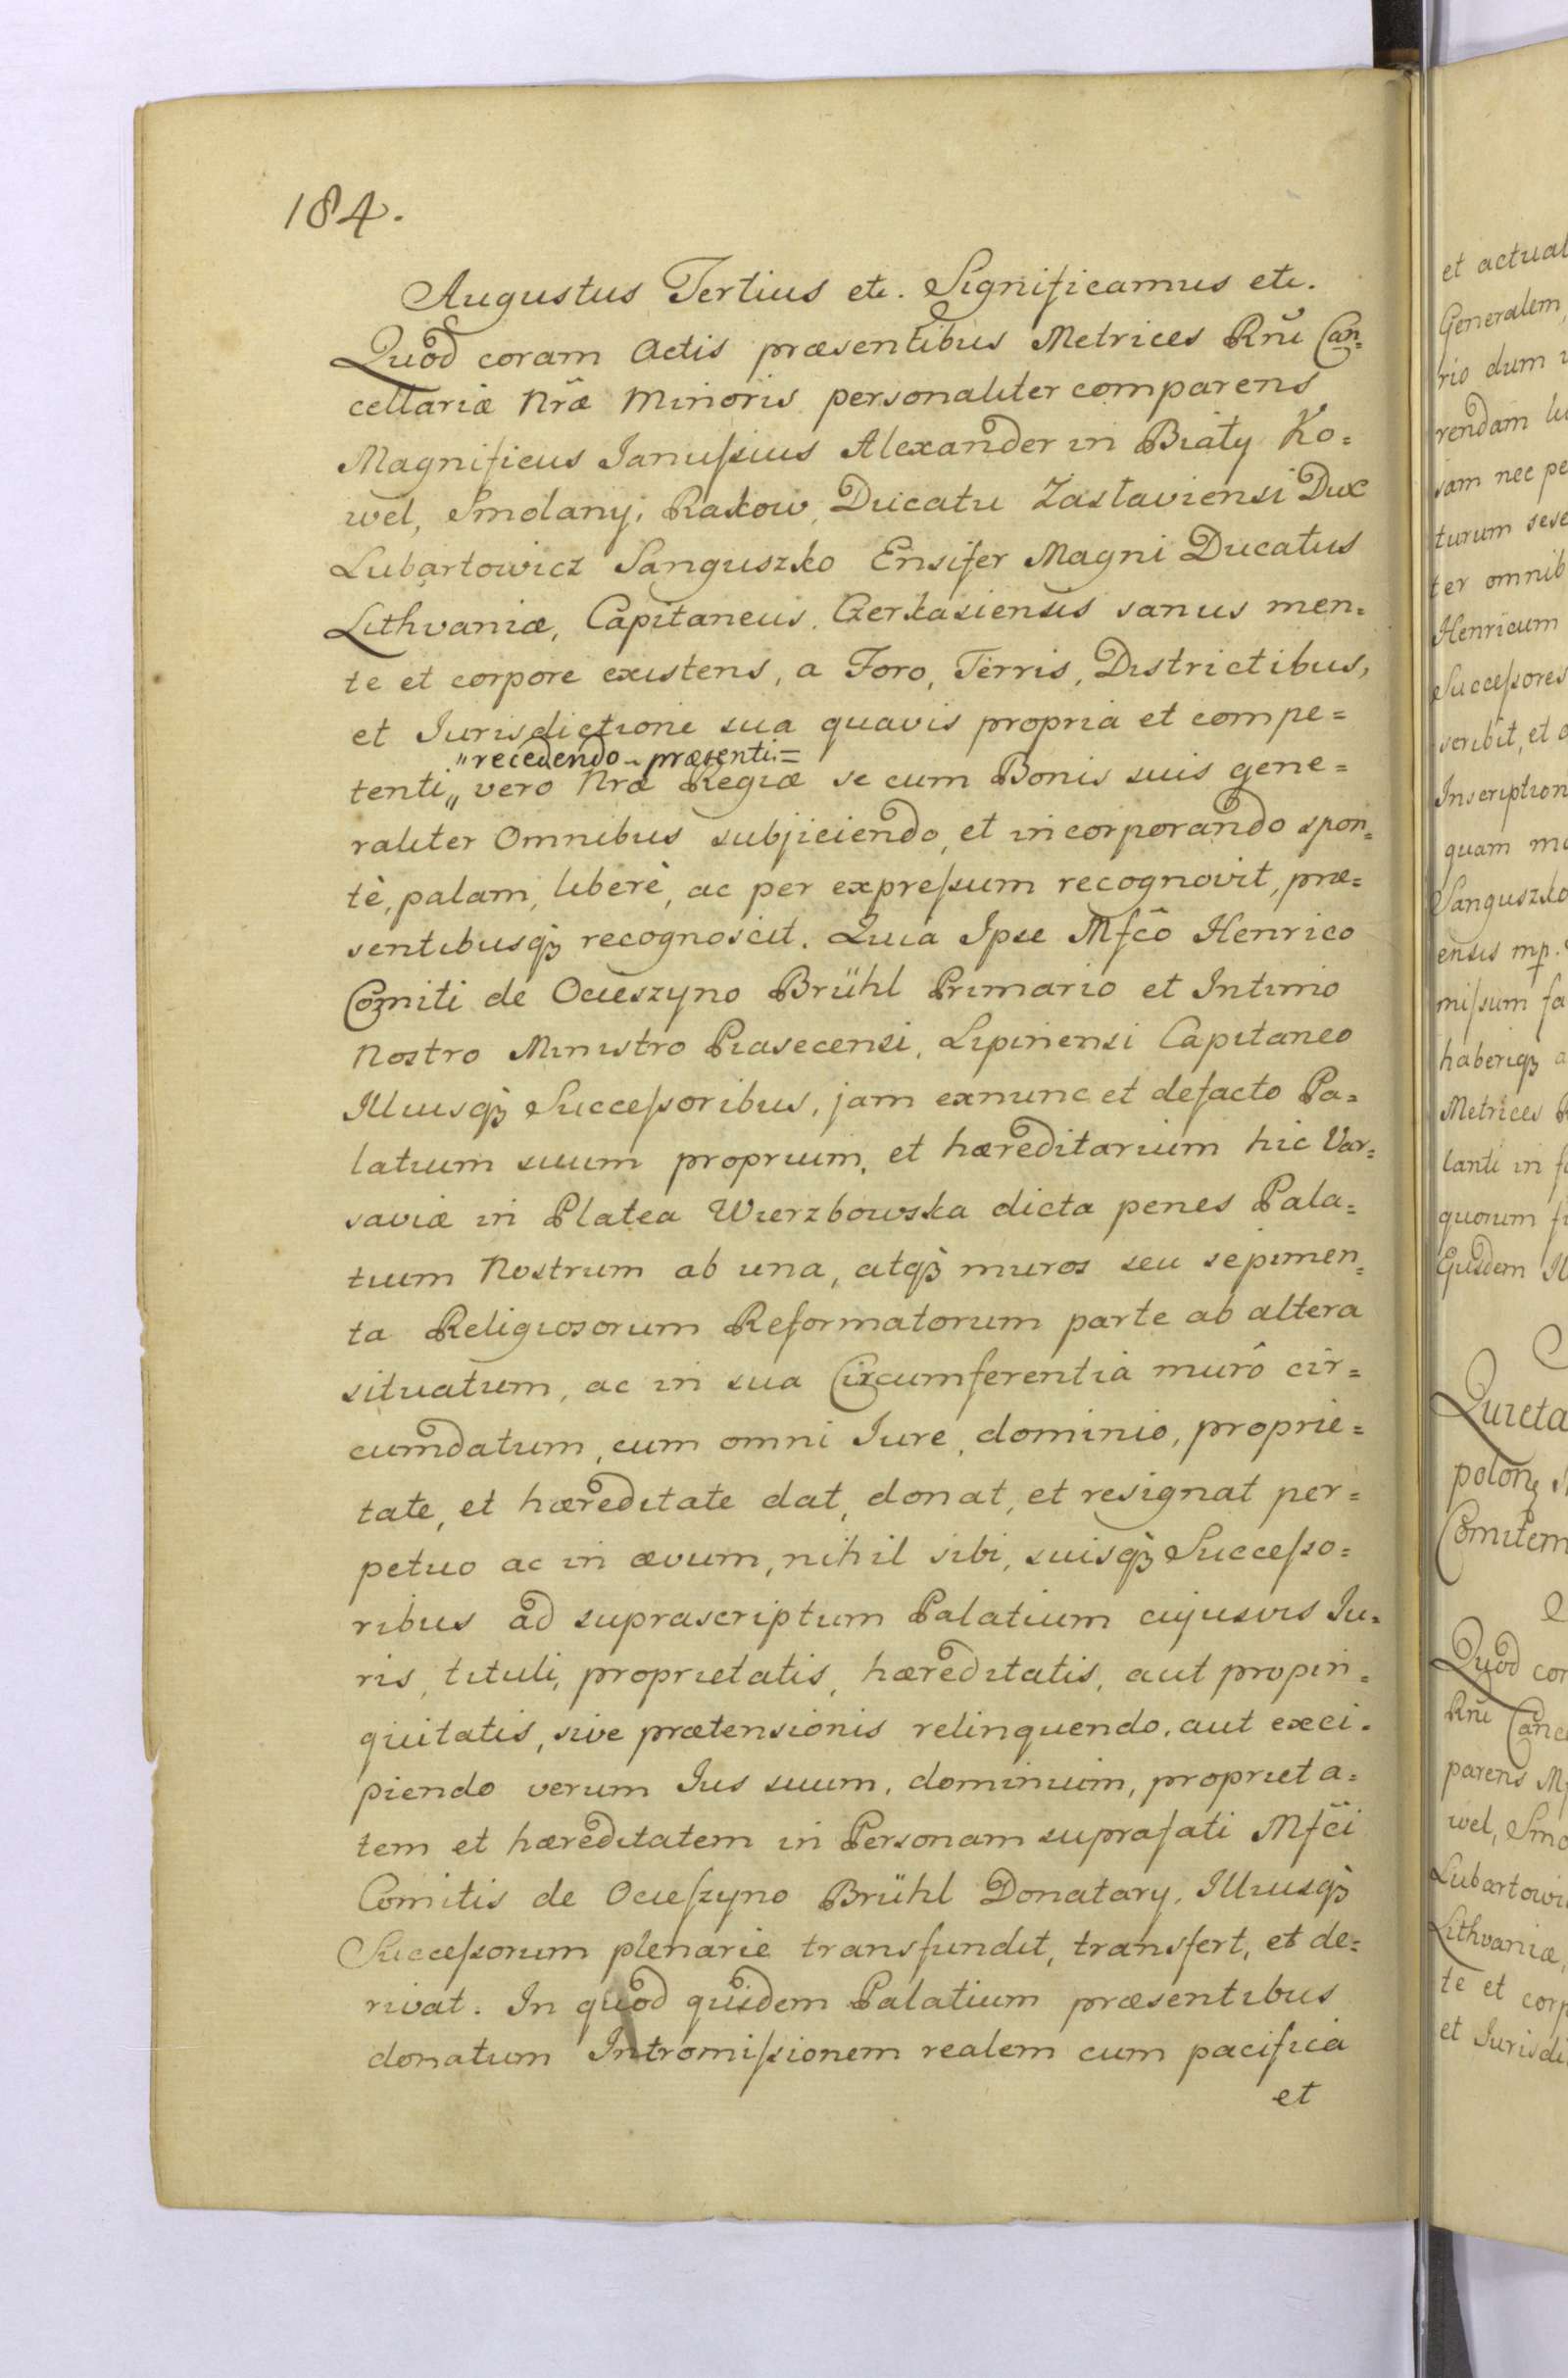 184.
Augustus Tertius etc. Significamus etc.
Quod coram Actis præsentibus Metrices Rñi Can=
cellariæ Nræ Minoris personaliter comparens
Magnificus Janussius Alexander in Biały Ko=
wel, Smolany, Rakow, Ducatu Zasłaviensi Dux
Lubartowicz Sanguszko Ensifer Magni Ducatus
Lithvaniæ, Capitaneus Czerkasiensis sanus men=
te et corpore existens, a Foro, Terris, Districtibus,
et Jurisdictione sua quavis propria et compe=
"recedendo præsenti=
tenti" vero Nræ Regiæ se cum Bonis suis gene=
raliter Omnibus subjiciendo, et incorporando spon=
tè, palam, liberè, ac per expressum recognovit, præ=
sentibusq3 recognoscit. Quia Ipse Mfcô Henrico
Comiti de Ocieszyno Brühl Primario et Intimo
Nostro Ministro Piasecensi, Lipinensi Capitaneo
Illiusq3 Successoribus, jam exnunc et defacto Pa=
latium suum proprium, et hæreditarium hic Var=
saviæ in Platea Wierzbowska dicta penes Pala=
tium Nostrum ab una, atq3 muros seu sepimen=
ta Religiosorum Reformatorum parte ab altera
situatum, ac in sua Circumferentia murô cir=
cumdatum, cum omni Jure, dominio, proprie=
tate, et hæreditate dat, donat, et resignat per=
petuo ac in ævum, nihil sibi, suisq3 Successo=
ribus ad suprascriptum Palatium cujusvis Ju=
ris, tituli, proprietatis, hæreditatis, aut propin=
quitatis, sive prætensionis relinquendo, aut exci=
piendo verum Jus suum, dominium, proprieta=
tem et hæreditatem in Personam suprafati Mfci
Comitis de Ocieszyno Brühl Donatary, Illiusq3
Successorum plenarie transfundit, transfert, et de=
rivat. In quod quidem Palatium præsentibus
donatum Intromissionem realem cum pacifica
et
et actual
Generalem,
rio dum
rendam
sam nec pe
turum sese
ter omnib
Henricum
Successores
scribit, et
Inscription
quam
Sanguszko
ensis mp.
missum fa
haberiq3 a
Metrices R
lanti in fo
quorum
Ejusdem
Quieta
polon
Comitem
Quod cor
Rñi Cance
parens M
wel, Smo
Lubartowi
Lithvaniæ,
te et corp
et Jurisdi